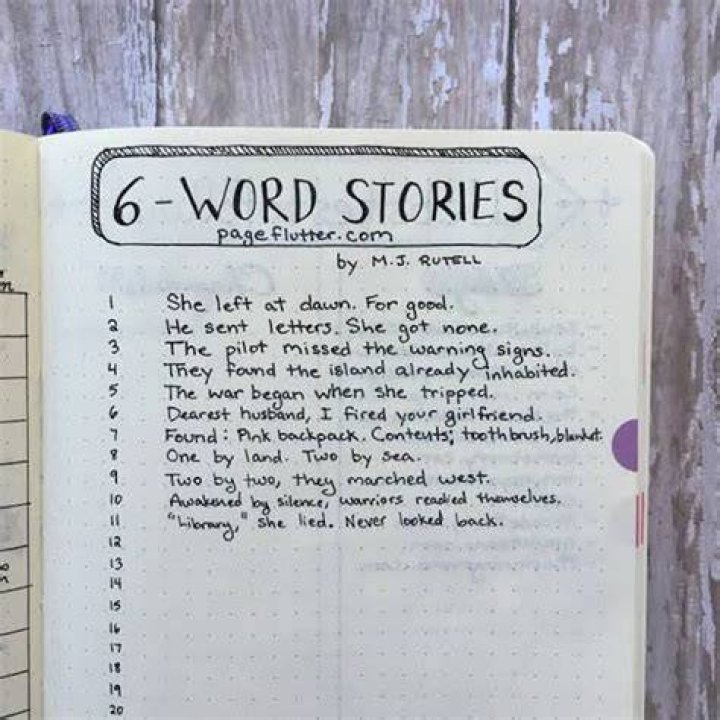 6-WORD STORIES
pageflutter.com
by M.J. RUTELL
1 She left at dawn. For good.
2 He sent letters. She got none.
3 The pilot missed the warning signs.
4 They found the island already inhabited.
5 The war began when she tripped.
6 Dearest husband, I fired your girlfriend.
7 Found: Pink backpack. Contents; toothbrush, blanket.
8 One by land. Two by sea.
9 Two by two, they marched west.
10 Awakened by silence, warriors readied themselves.
11 "Library," she lied. Never looked back.
12
13
14
15
16
17
18
19
20